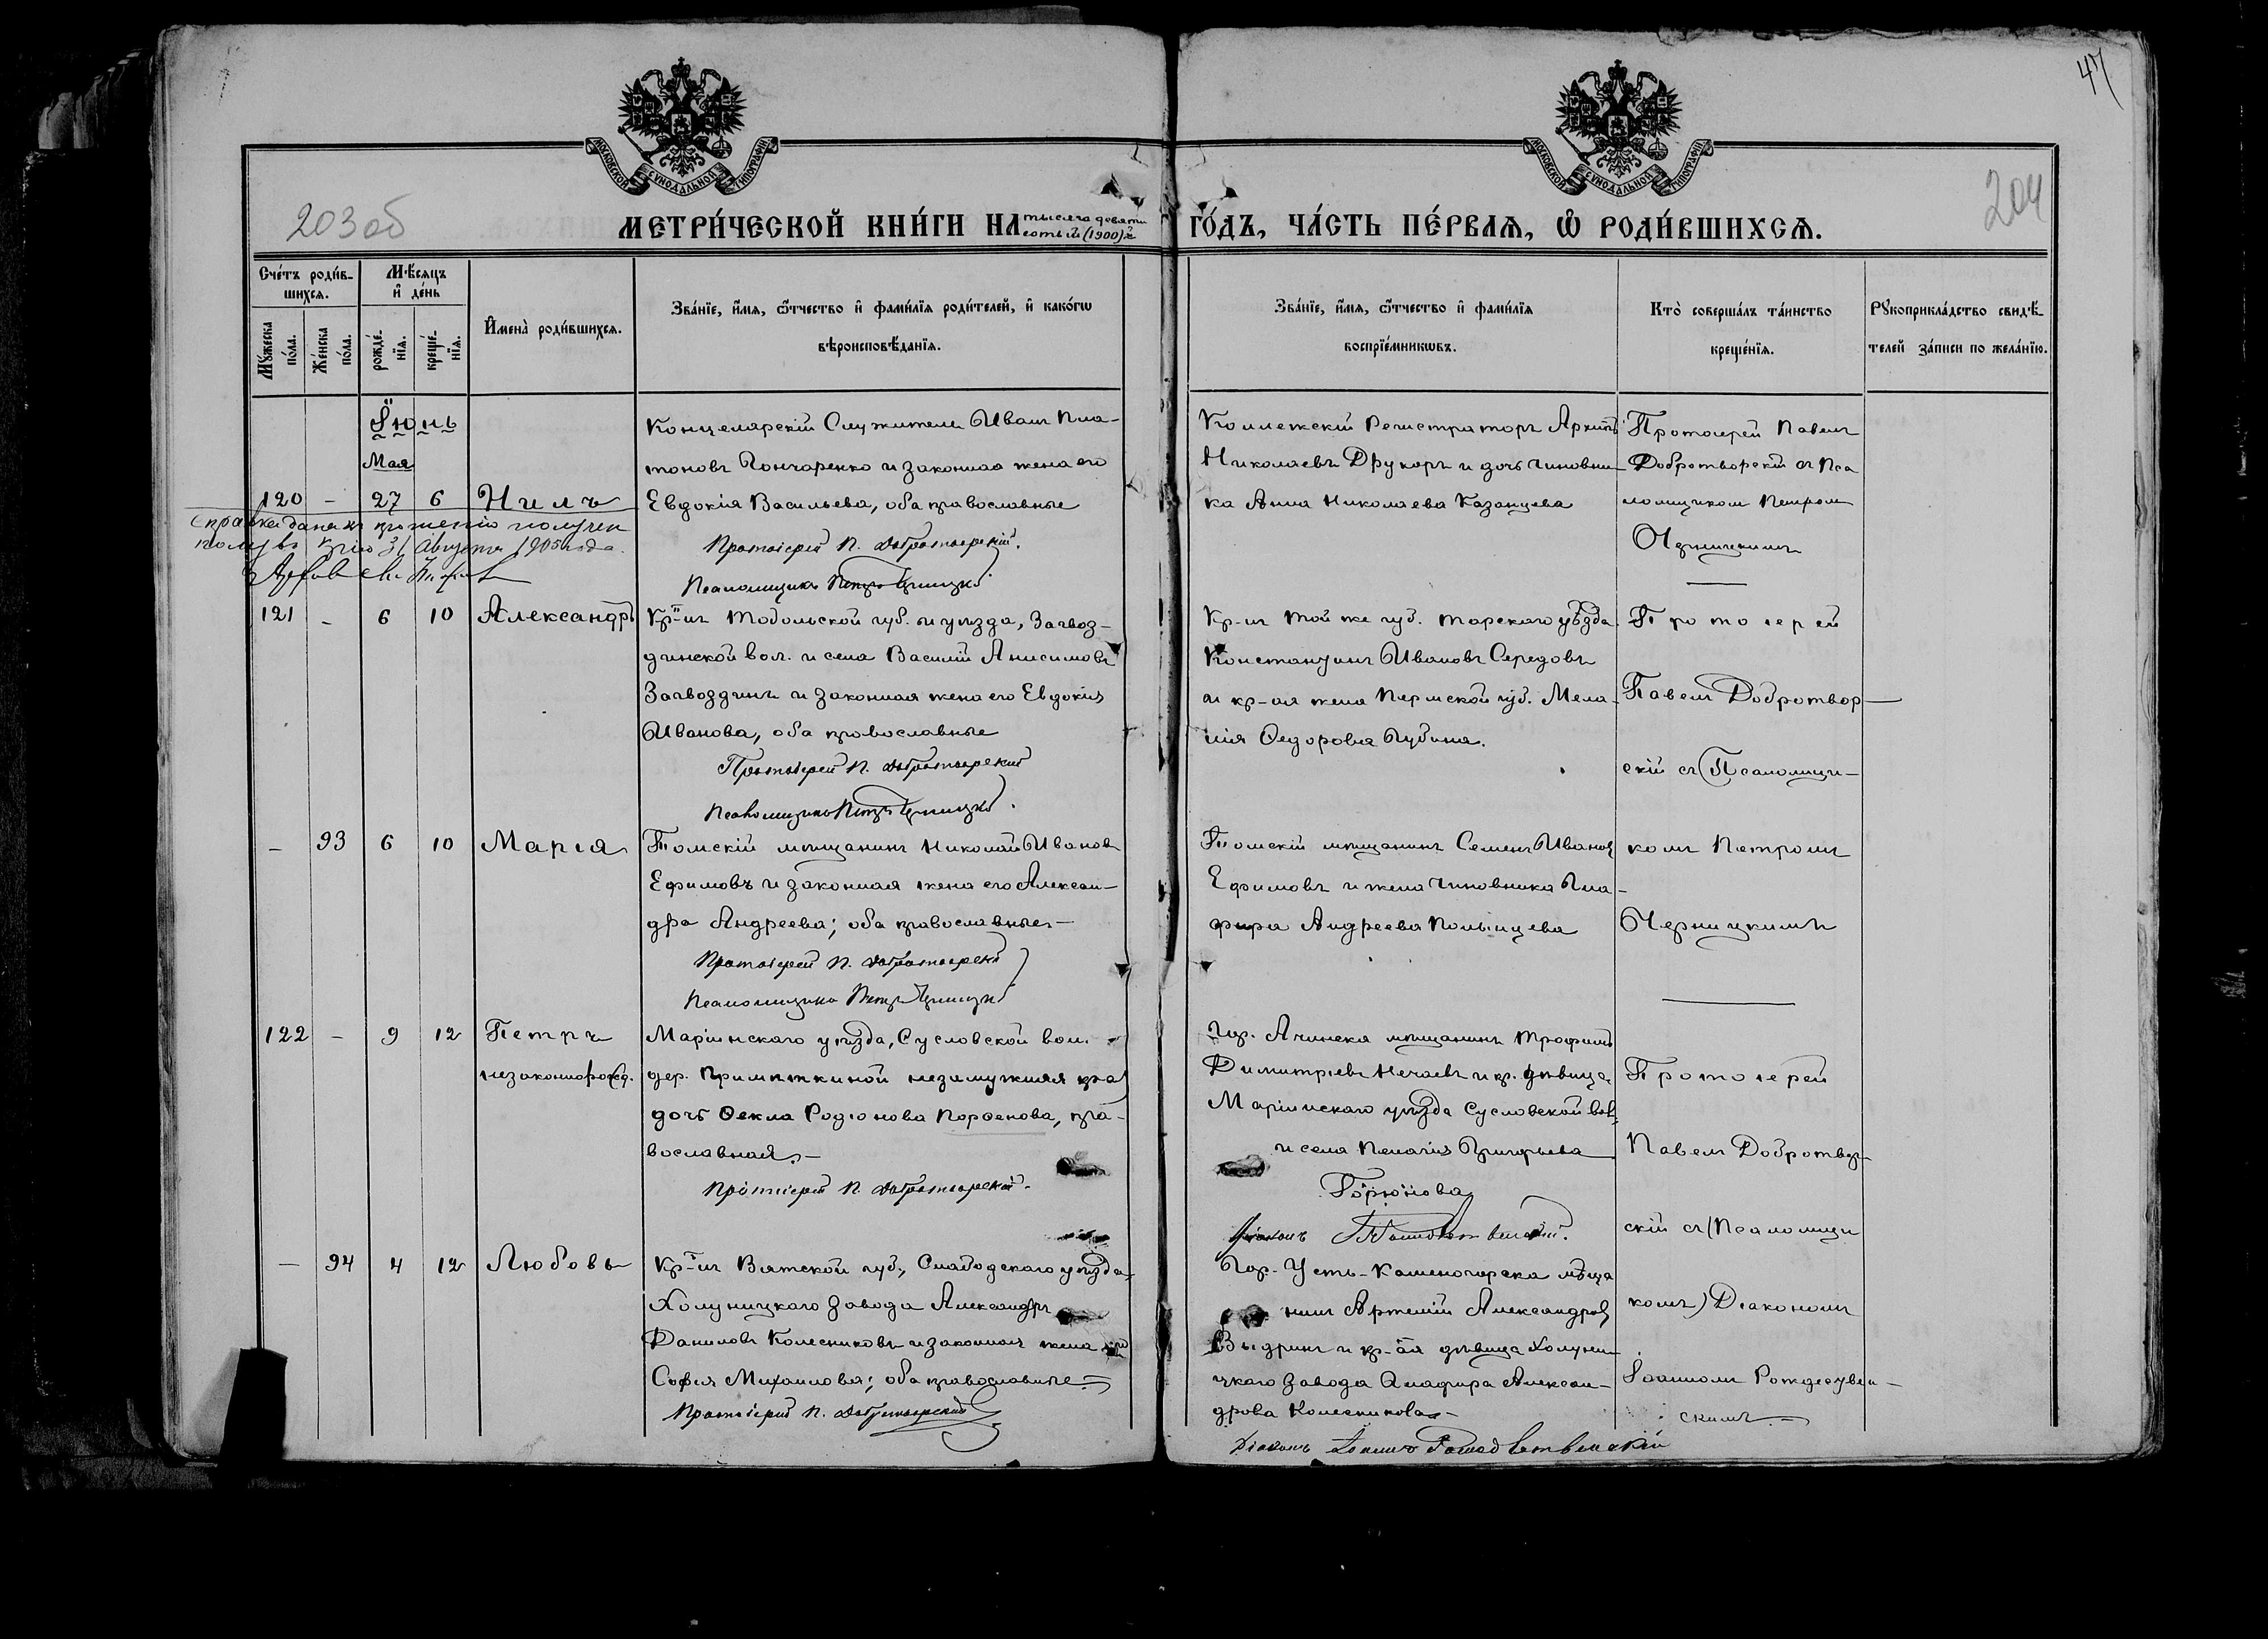 47
203 об
204
МОСКОВСКОЙ СѴНОДАЛЬНОЙ ТИПОГРАФІИ
МОСКОВСКОЙ СѴНОДАЛЬНОЙ ТИПОГРАФІИ
МЕТРИ́ЧЕСКОЙ КНИ́ГИ НА тысяча девяти
сотый (1900) й
ГО́ДЪ, ЧА́СТЬ ПЕ́РВАЯ, Ѽ РОДИ́ВШИХСЯ.
Сче́тъ роди́в-
шихся.
Мѣ́сяцъ
и҆ де́нь
Мꙋ́жеска
по́ла.
Же́нска
по́ла.
рожде́-
нїя.
креще́-
нїя.
И҆мена̀ роди́вшихся.
Зва́нїе, и҆́мя, ѻ҆́тчество и҆ фами́лїя роди́телей, и҆ како́гѡ
вѣроисповѣ́данїя.
Зва́нїе, и҆́мя, ѻ҆́тчество и҆ фами́лїя
воспрїе́мникѡвъ.
Кто̀ соверша́лъ та́инство
креще́нїя.
Рꙋкоприкла́дство свидѣ́-
телей за́писи по жела́нїю.
Іюнь
Мая
120 – 27 6 Нилъ
Концелярскій Служитель Иванъ Пла-
тоновъ Гончаренко и законная жена его
Евдокія Васильева, оба православные
Протоіерей П. Добротворскій.
Псаломщикъ Петръ Черницкій.
Коллежскій Регистраторъ Архипъ
Николаевъ Друкоръ и дочь чиновни-
ка Анна Николаева Казанцева
Протоіерей Павелъ
Добротворскій съ Пса
ломщикомъ Петромъ
Черницкимъ
Справка дана
31 Августа 1905 года.
121 – 6 10 Александръ
Кр-нъ Тобольской губ. и уѣзда, Загвоз-
динской вол. и села Василій Анисимовъ
Загвоздинъ и законная жена его Евдокія
Иванова, оба православные
Протоіерей П. Добротворскій
Псаломщикъ Петръ Черницкій.
Кр-нъ той же губ. Тарскаго уѣзда
Константинъ Ивановъ Середовъ
и кр-ая жена Пермской губ. Мела-
нія Ѳедорова Губина.
Протоіерей
Павелъ Добротвор-
скій съ (Псаломщи-
комъ Петромъ
Черницкимъ
– 93 6 10 Марія
Томскій мѣщанинъ Николай Ивановъ
Ефимовъ и законная жена его Алексан-
дра Андреева; оба православные. –
Протоіерей П. Добротворскій
Псаломщикъ Петръ Черницкій
Томскій мѣщанинъ Семенъ Ивановъ
Ефимовъ и жена чиновника Гла-
фира Андреева
122 – 9 12 Петръ
незаконнорожд.
Маріинскаго уѣзда, Сусловской вол.
дер. Приметкиной незамужняя кр-ая
дочь Ѳекла Родіонова Парѳенова, пра-
вославная. –
Протоіерей П. Добротворскій.
Гор. Ачинска мѣщанинъ Трофимъ
Димитріевъ Нечаевъ и кр. дѣвица
Маріинскаго уѣзда Сусловской вол.
и села Пелагія Григорьева
Горюнова
Діаконъ Рождественскій.
Протоіерей
Павелъ Добротвор-
скій съ (Псаломщи
комъ) Діакономъ
Іоанномъ Рождествен-
скимъ. –
– 94 4 12 Любовь
Кр-нъ Вятской губ., Слабодскаго уѣзда,
Холуницкаго завода Александръ
Даниловъ Колесниковъ и законная жена его
Софія Михаилова; оба православные. –
Протоіерей П. Добротворскій
Гор. Усть-Каменогорска мѣща
нинъ Артемій Александровъ
Выдринъ и кр-ая дѣвица Холуни-
цкаго завода Глафира Алексан-
дрова Колесникова –
Діаконъ Іоаннъ Рождественскій